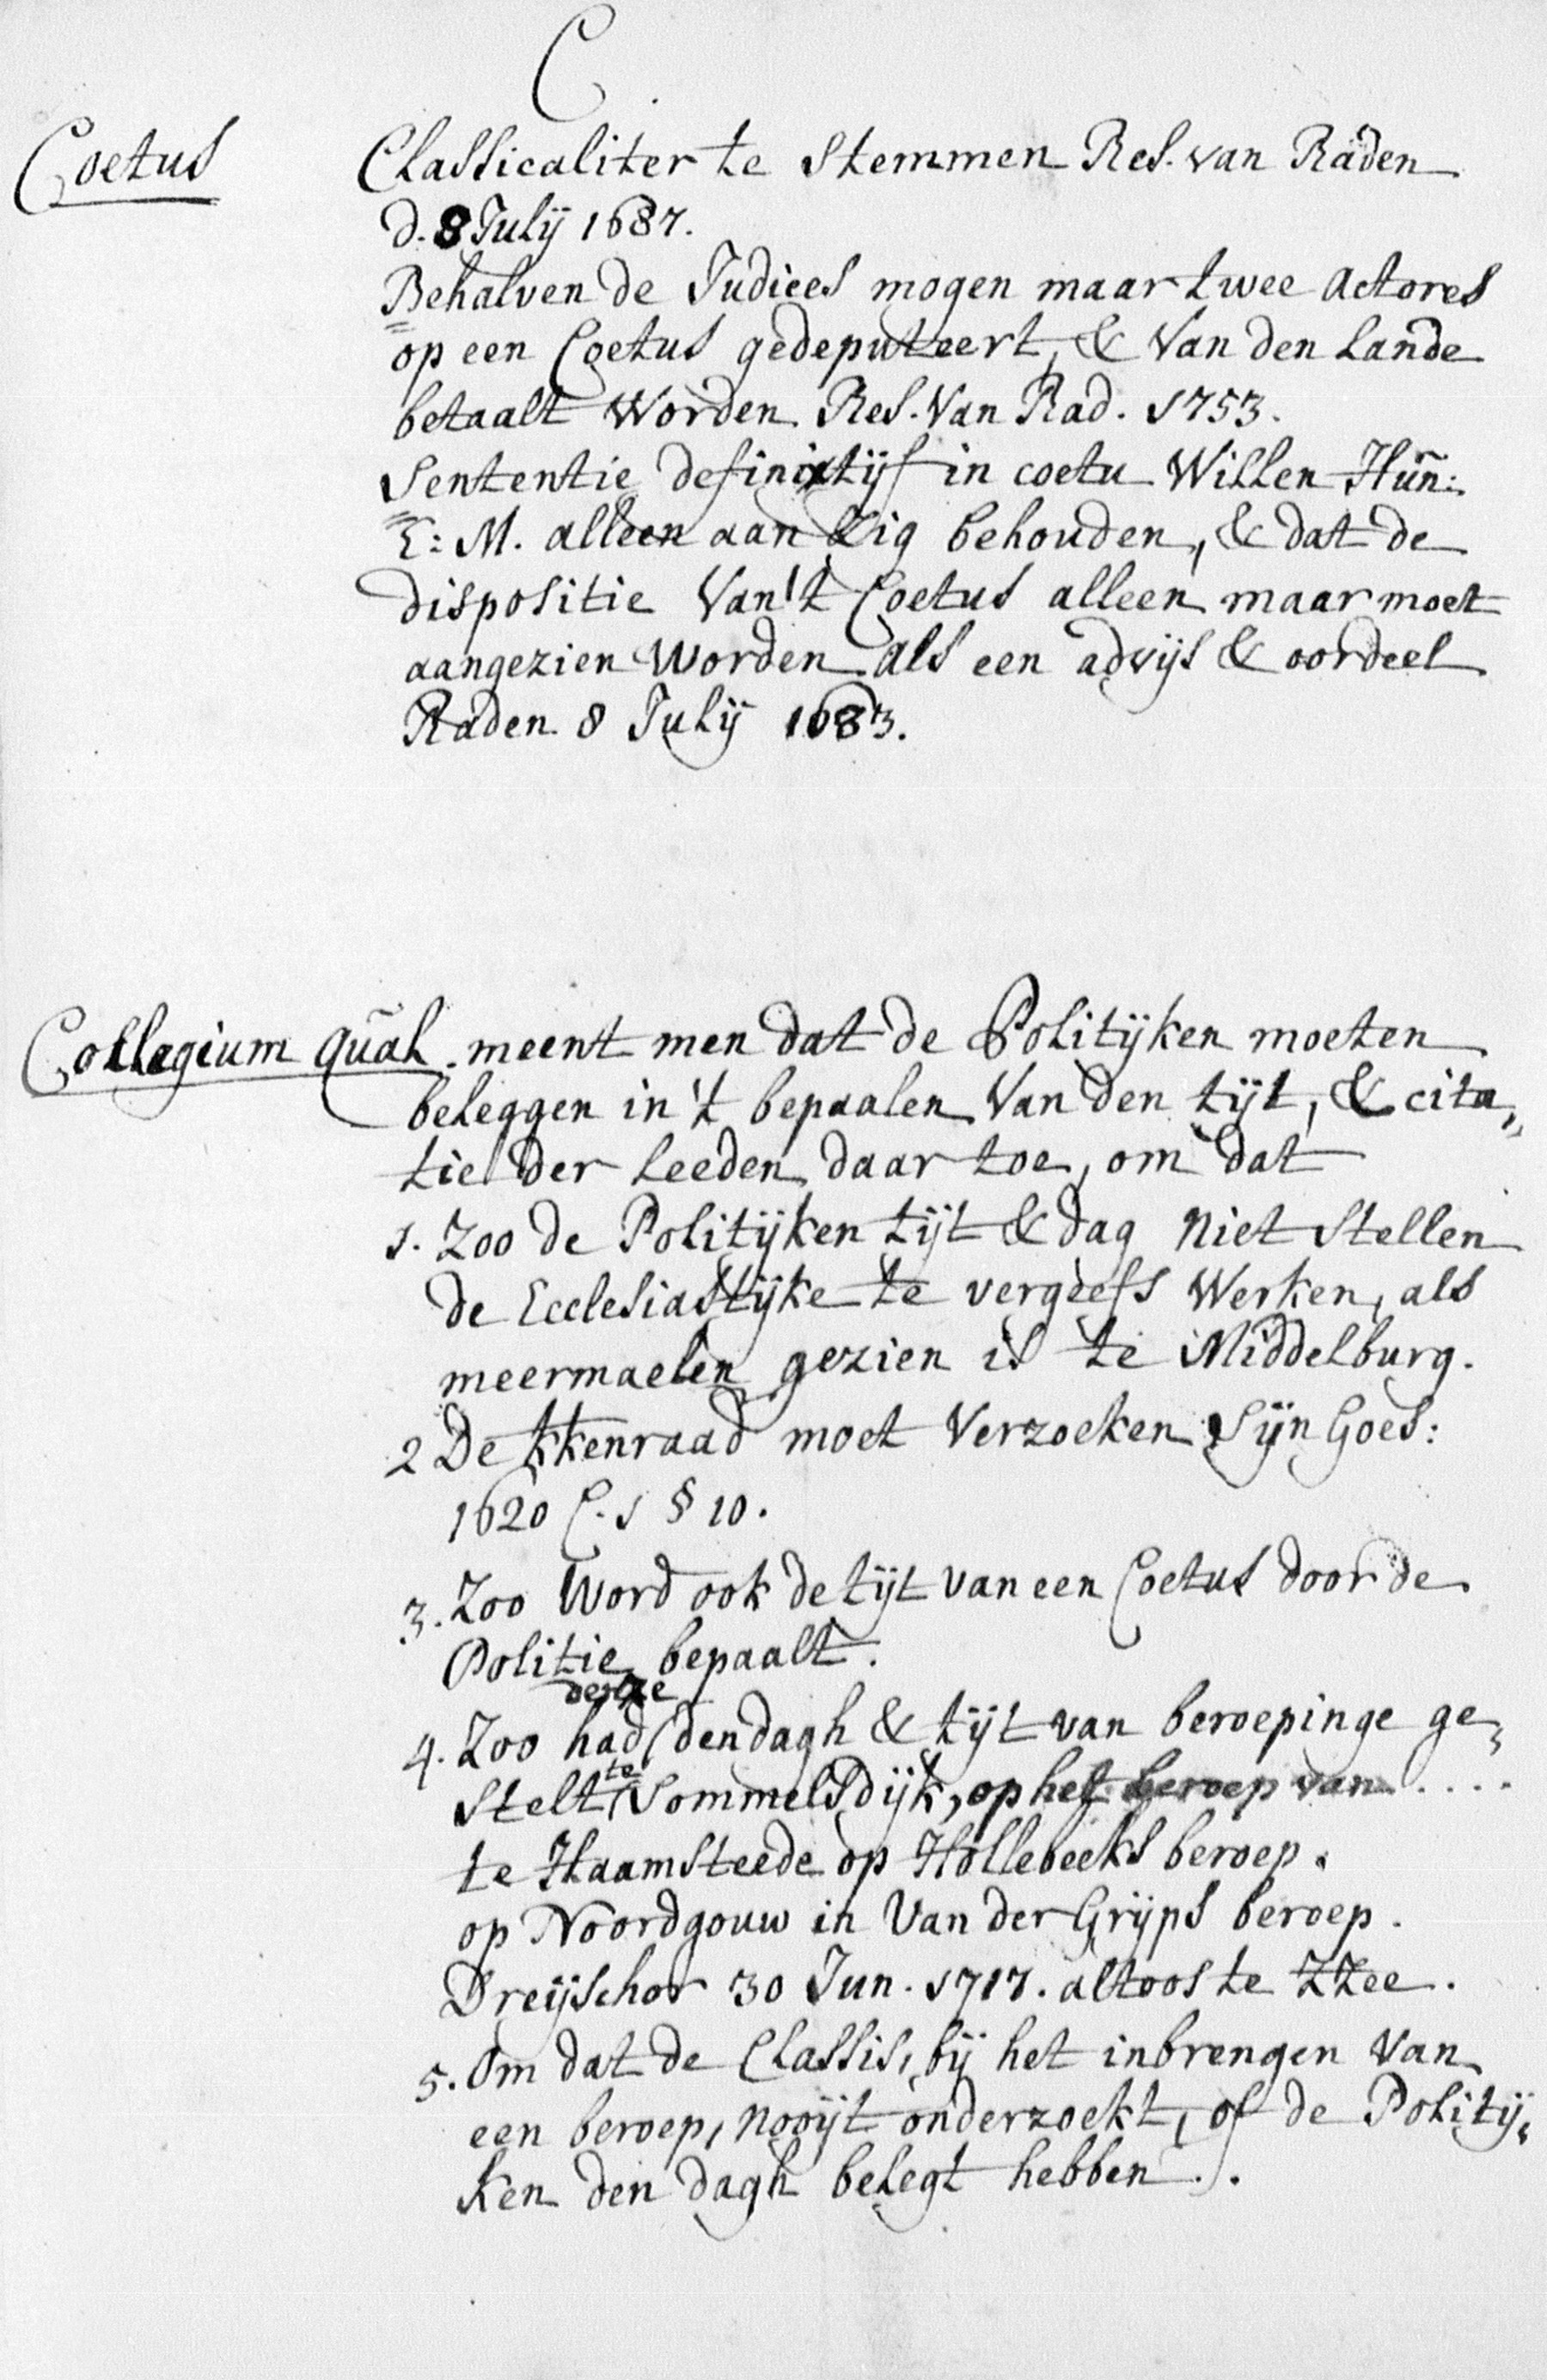 C
Coetus Classicaliter te stemmen Res. van Raden
d. 8 Julij 1687.
Behalven de Judices mogen maar twee Actores
op een Coetus gedeputeert, & van den Lande
betaalt worden. Res. van Rad. 1753.
Sententie definitijf in coetu willen Hun:
E: M. alleen aan Zig behouden, & dat de
dispositie van 't Coetus alleen maar moet
aangezien worden als een advijs & oordeel
Raden 8 Julij 1683.
Collegium Qual. meent men dat de Politijken moeten
beleggen in 't bepaalen van den tijt, & cita„
tie der Leeden daar toe, om dat
1. Zoo de Politijken tijt & dag niet stellen
de Ecclesiastijke te vergeefs werken, als
meermaelen gezien is te Middelburg.
2 De kkenraad moet verzoeken Sijn Goes:
1620 C. 1 § 10.
3. Zoo word ook de tijt van een Coetus door de
Politie bepaalt.
4. Zoo had dezze den dagh & tijt van beroepinge ge„
stelt te Sommelsdijk, op het beroep van ....
te Haamsteede op Hollebeeks beroep.
op Noordgouw in Van der Grijps beroep.
Dreijschor 30 Jun. 1717. altoos te ZZee.
5. Om dat de Classis, bij het inbrengen van
een beroep, nooijt onderzoekt, of de Politij„
ken den dagh belegt hebben.